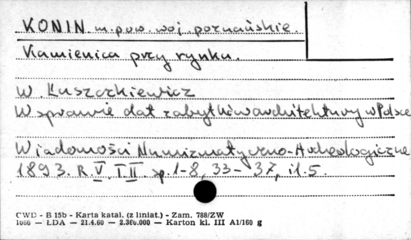 KONIN m. pow. woj. poznańskie.
Kamienica przy rynku.
W. Łuszczkiewicz
W sprawie dat zabytków architektury w Polsce
Wiadomości Numizmatyczno-Archeologiczne
1893. R. V. T. II sp. 1-8, 33-37, il. 5.
CWD - B 15b - Karta katal. (z liniat.) - Zam. 788/ZW
LDA — 21.4.60 — 2.300.000 — Karton kl. III A1/160 g